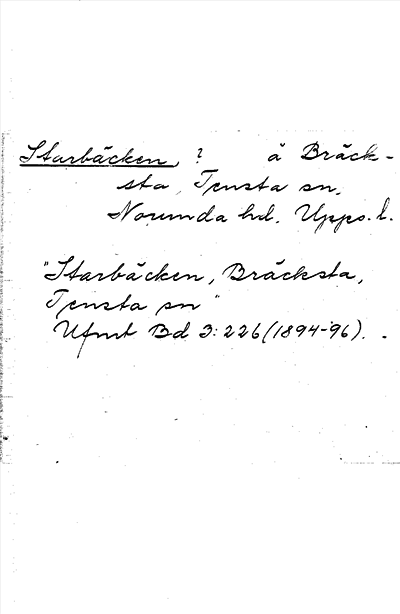 Starbäcken, ? å Bräck-
sta, Tensta sn,
Norunda hd. Upps. l.
"Starbäcken, Bräcksta,
Tensta sn"
Ufmt Bd 3:226 (1894-96). .